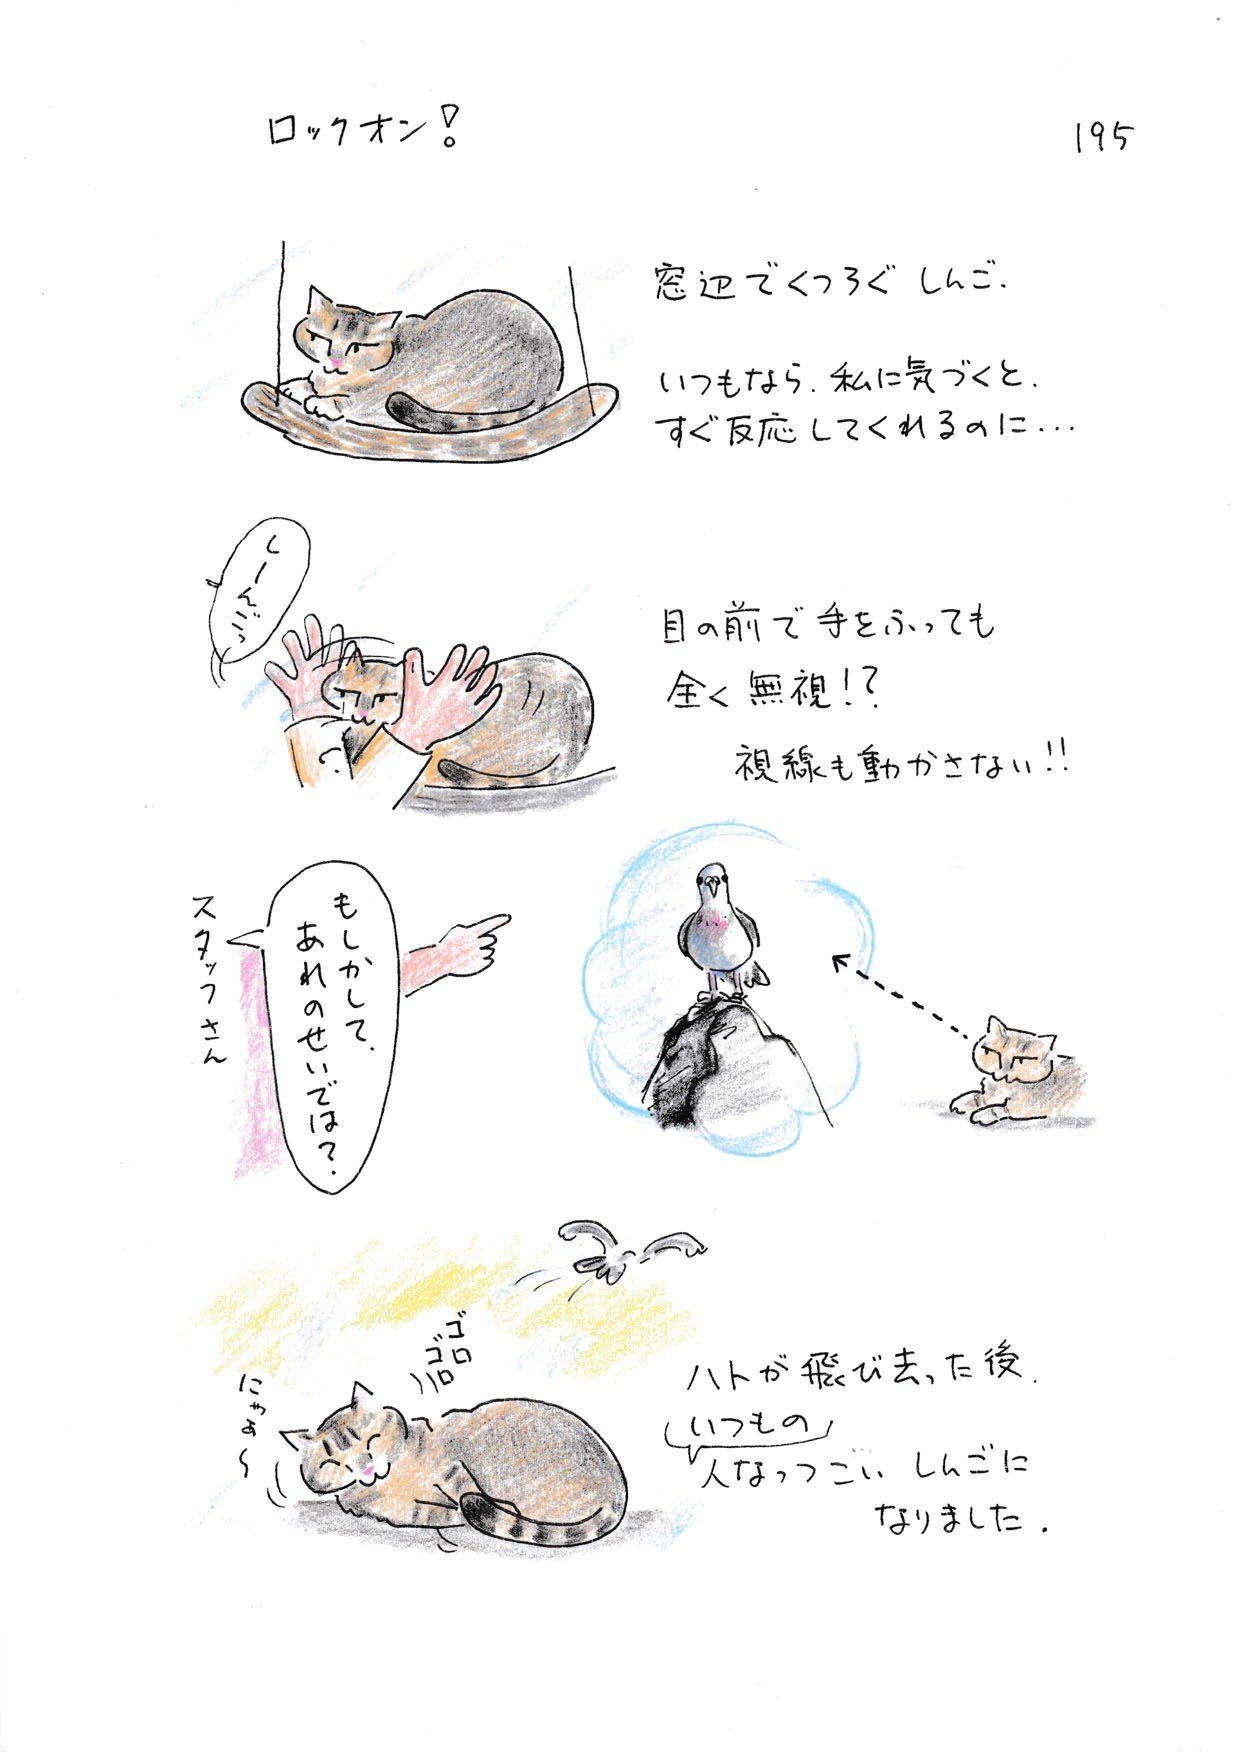 ロックオン!
195
窓辺でくつろぐ しんご、
いつもなら、私に気づくと、
すぐ反応してくれるのに...
しーんごっ
目の前で手をふっても
全く無視!?
視線も動かさない!!
スタッフさん
もしかして、
あれのせいでは?
ゴロ
ゴロ
にゃぁ~
ハトが飛び去った後、
いつもの
人なつっこい しんごに
なりました.